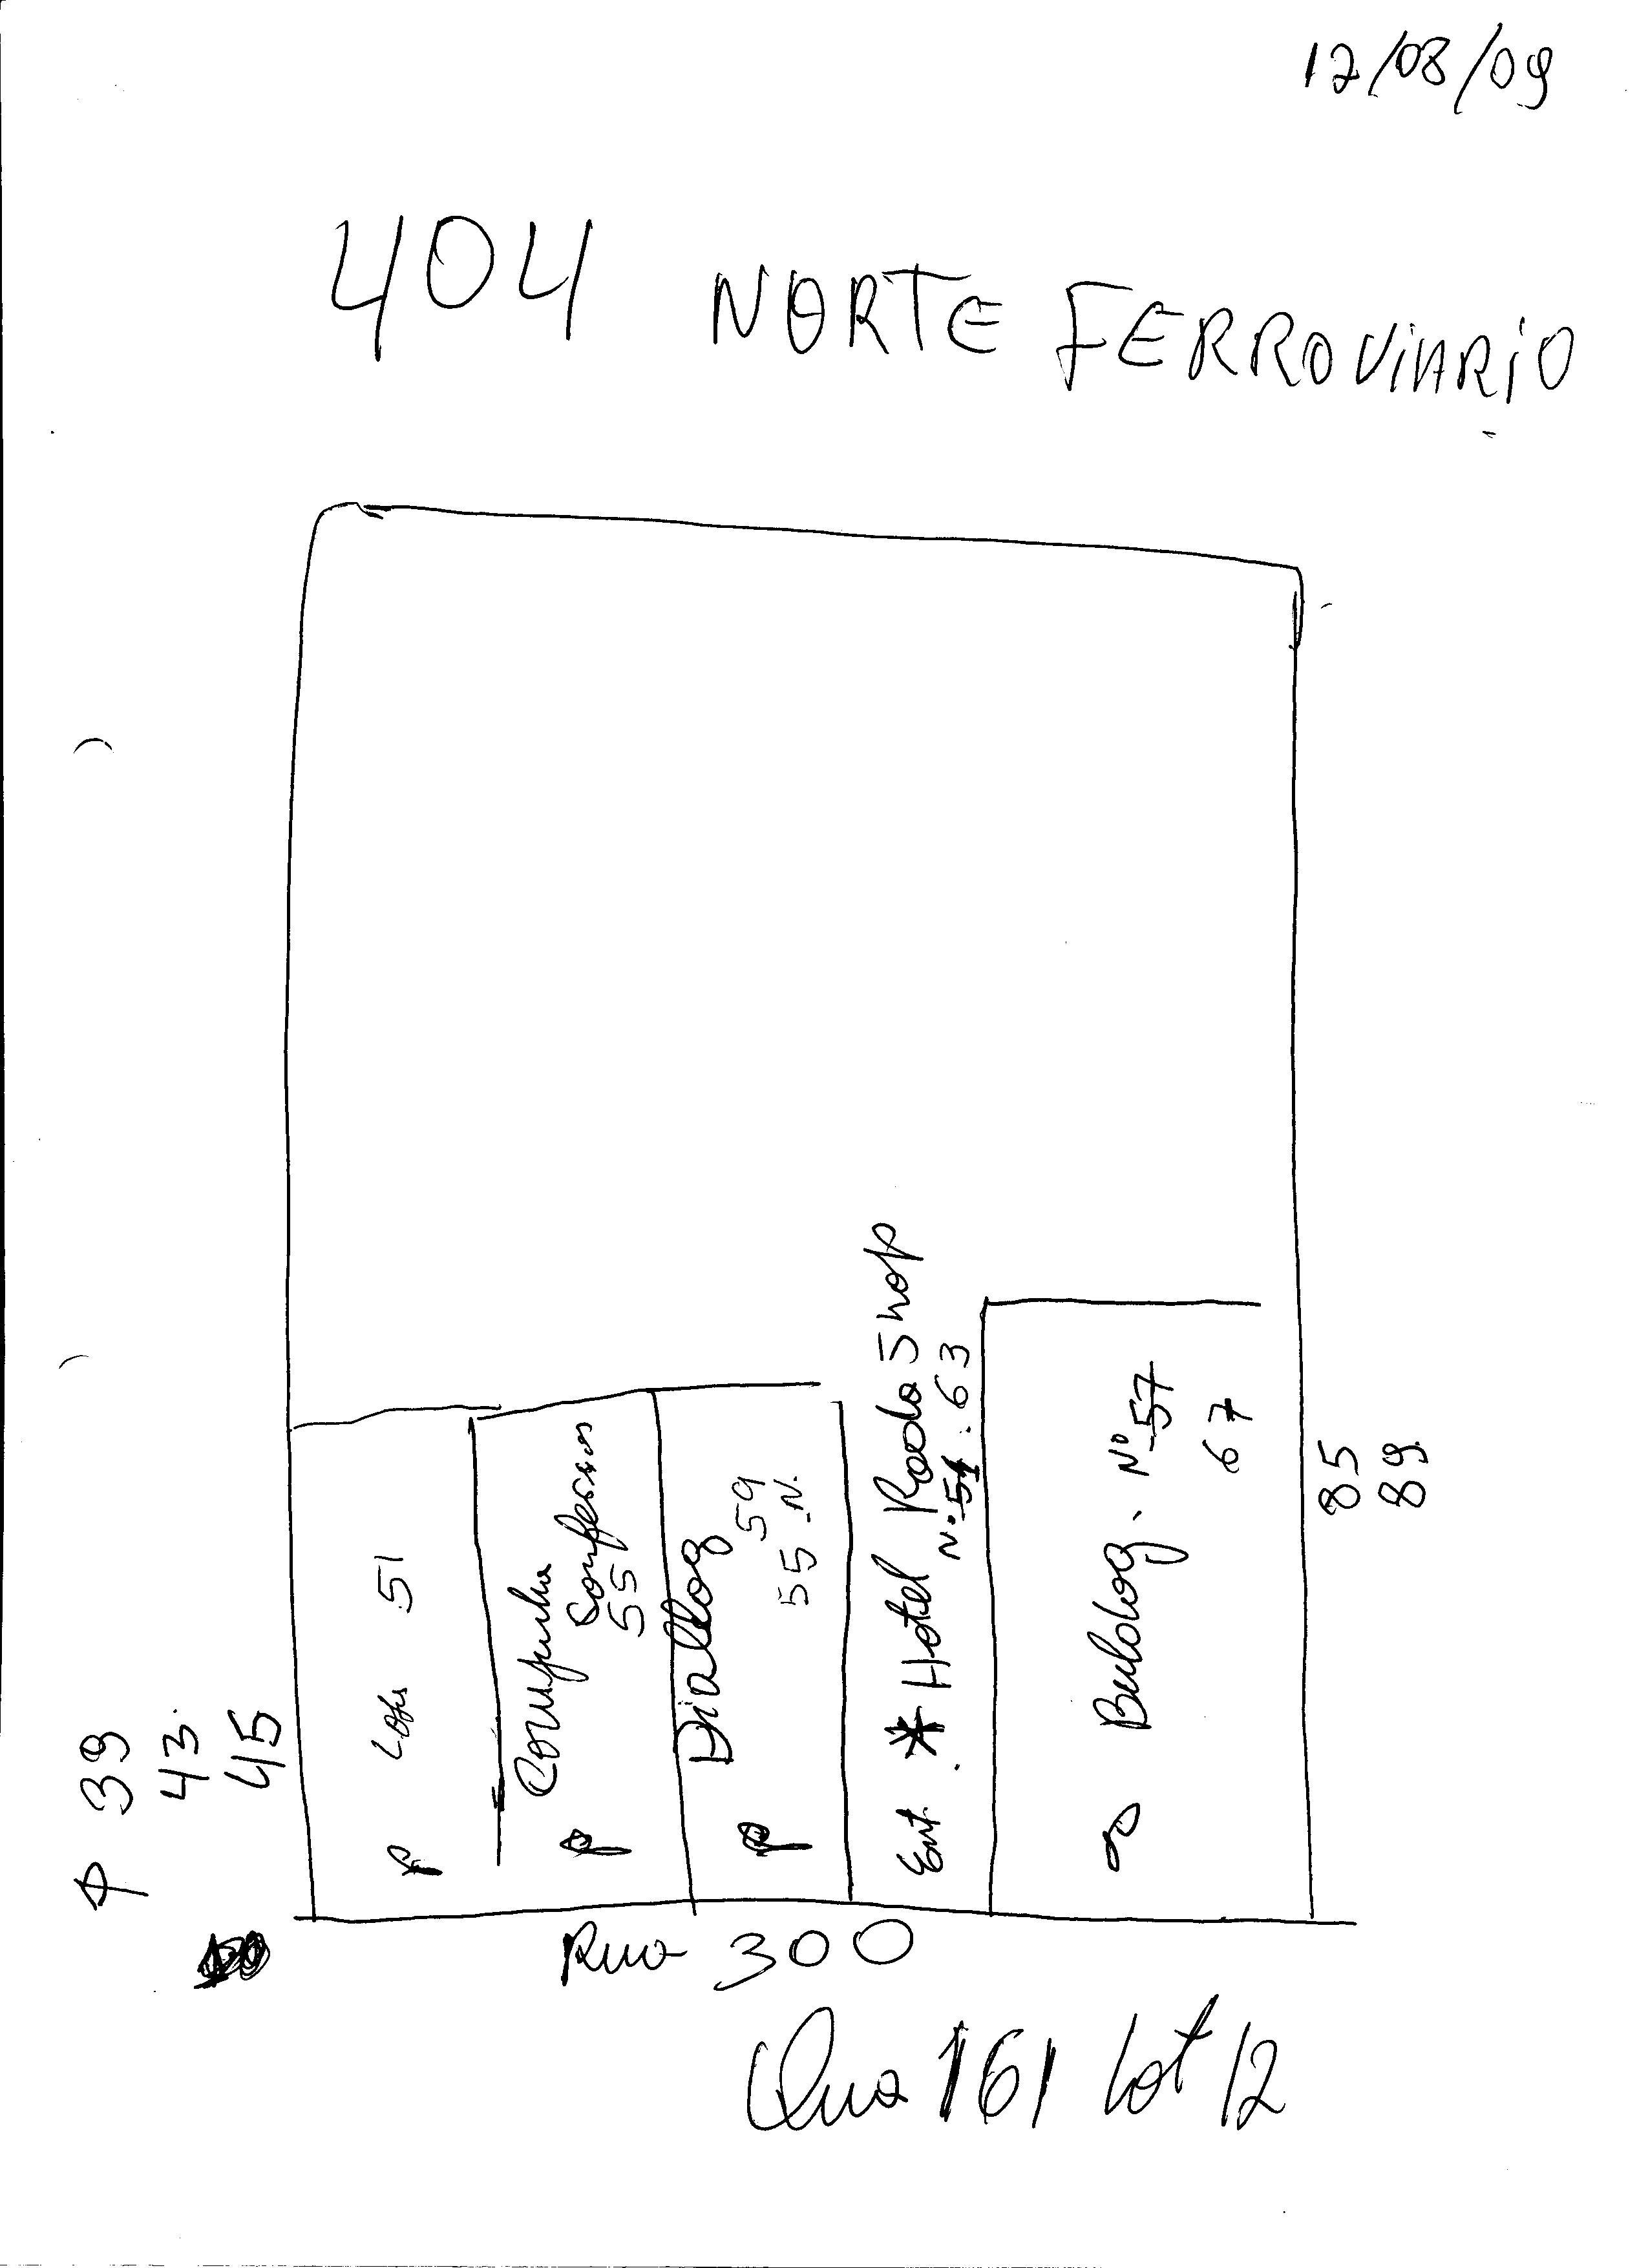 12/08/09
404 NORTE FERROVIARIO
39
43.
45
P Loja 51
P
55
P DialLog
59
55 N.
Ent. * Hotel Rodo Shop
Nº 51. 63
Nº 57
67
85
89
Rua 300
Qua 161 Lot 12